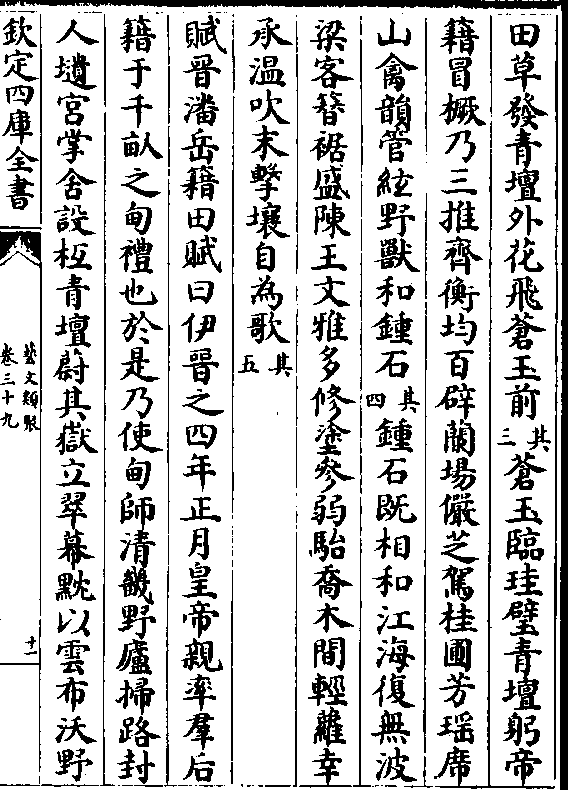 田草發青壇外花飛蒼玉前其三蒼玉臨珪璧青壇躬帝
籍冒橛乃三推齊衡均百辟蘭場儼芝駕桂圃芳瑶席
山禽韻管絃野獸和鍾石其四鍾石既相和江海復無波
梁客簪裾盛陳王文雅多修塗參弱駘喬木間輕蘿幸
承温吹末擊壤自為歌其五
賦晋潘岳籍田賦曰伊晋之四年正月皇帝親率羣后
籍于千畝之甸禮也於是乃使甸師清畿野廬掃路封
人壝宮掌舍設枑青壇蔚其嶽立翠幕黕以雲布沃野
欽定四庫全書
藝文類聚
卷三十九
十一